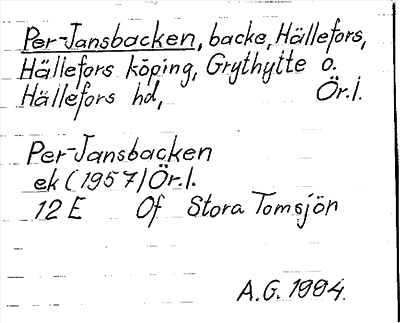 Per-Jansbacken, backe, Hällefors,
Hällefors köping, Grythytte o.
Hällefors hd, Ör.l.
Per-Jansbacken
ek (1957) Ör.l.
12 E Of Stora Tomsjön
A.G. 1994.